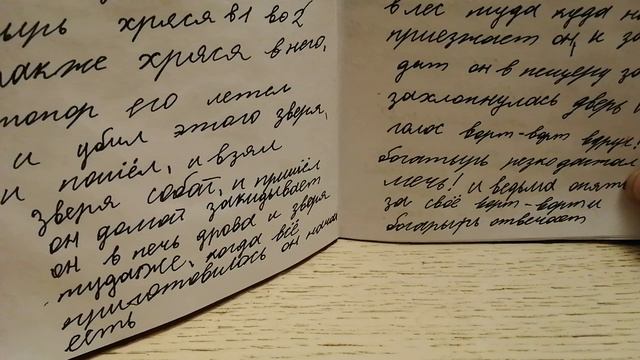 хряся в 1 во 2
также хряся в него,
топор его летел
и убил этого зверя,
и пошёл, и взял
зверя собой, и пришёл
он домой закидывает
он в печь дрова и зверя
туда же, когда всё
приготовилось он начал
есть
в лес туда куда
приезжает он, и
он в пещеру
захлопнулась дверь
голос ворт-ворт вдруг!
богатырь резко достал
мечь! и ведьма опять
за своё ворт-ворт и
богатырь отвечает